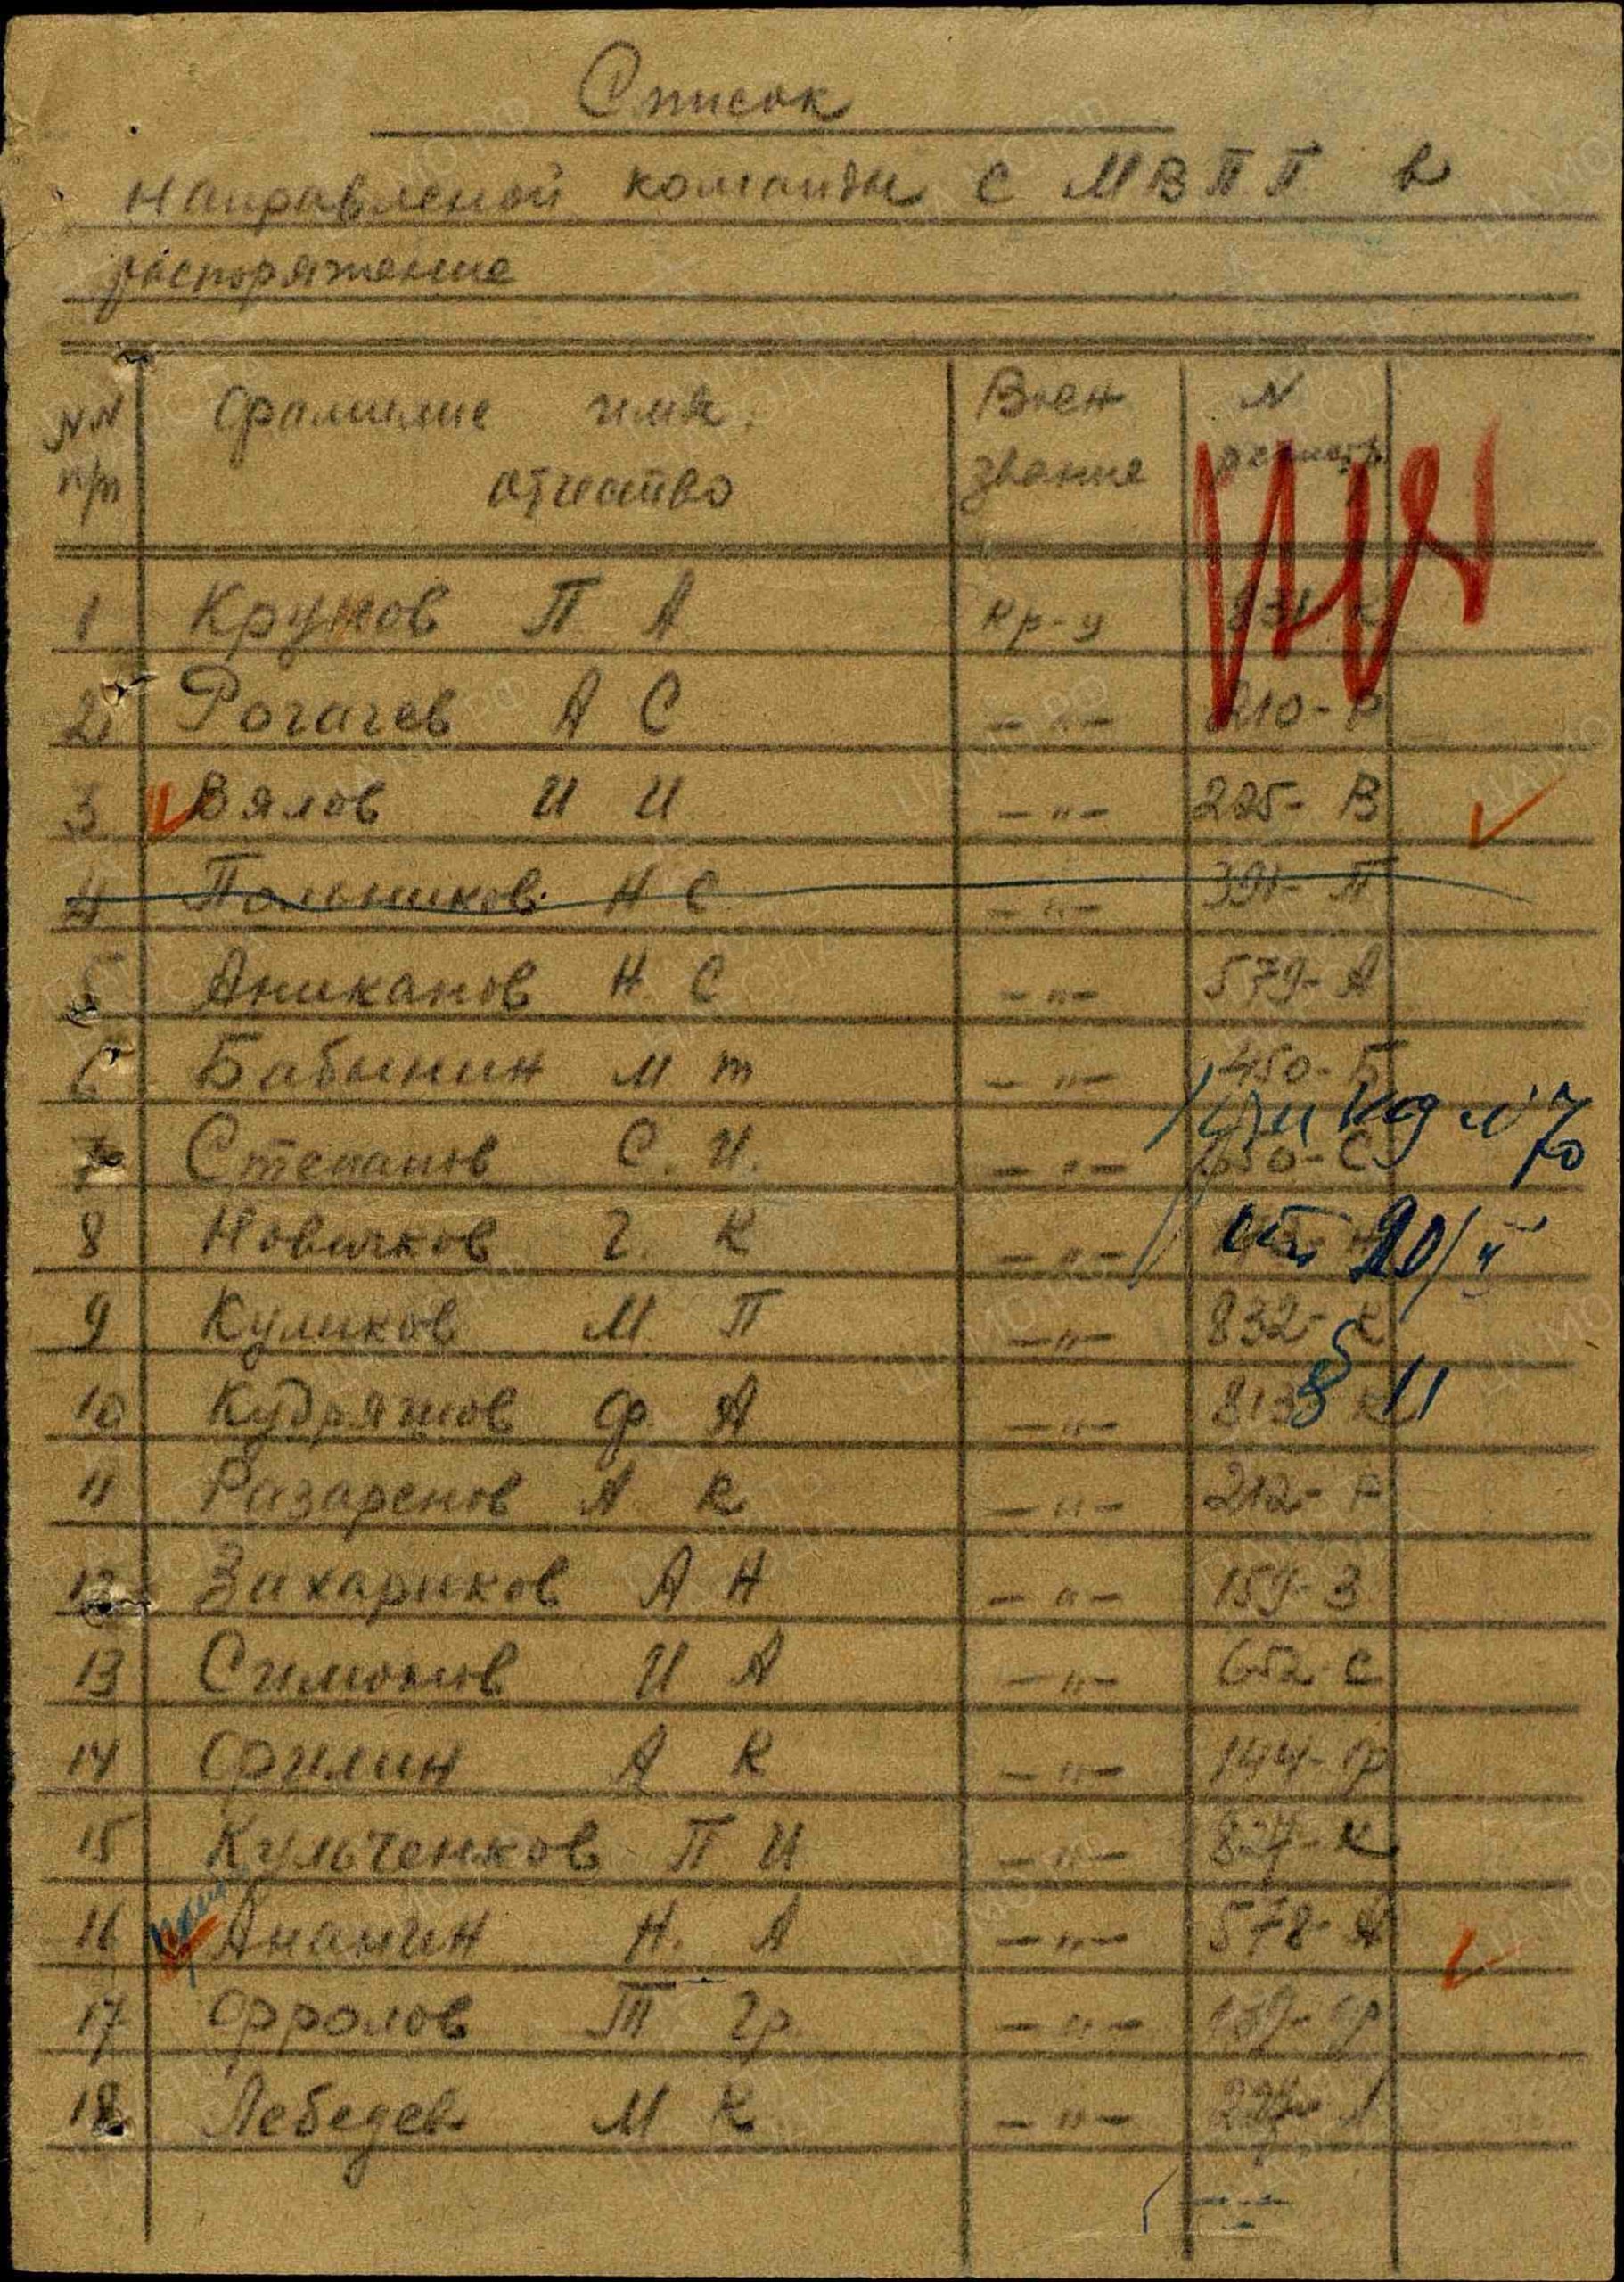 Список
Направленой команды с МВПП в
распоряжение
NN п/п Фамилие имя отчество Воен звания N регистр
1 Крунов П А Кр-ц 831-К
2 Рогачев А С —"— 210-Р
3 Вялов И И —"— 225-В
4 Польшиков Н С —"— 391-П
5 Аниканов Н. С —"— 579-А
6 Бабынин М т —"— 450-Б
7 Степанов С. И. —"— 650-С
8 Новичков Г. К —"—
от 20/II
9 Куликов М П —"— 832-К
§ 11
10 Кудряшов Ф. А —"— 813-К
11 Разаренов А К —"— 212-Р
12 Захариков А Н —"— 159-З
13 Симонов И А —"— 652-С
14 Филин А К —"— 144-Ф
15 Кульченков П И —"— 827-К
16 Ананин Н. А —"— 578-А
17 Фролов Т Гр. —"— 139-Ф
18 Лебедев М К —"—